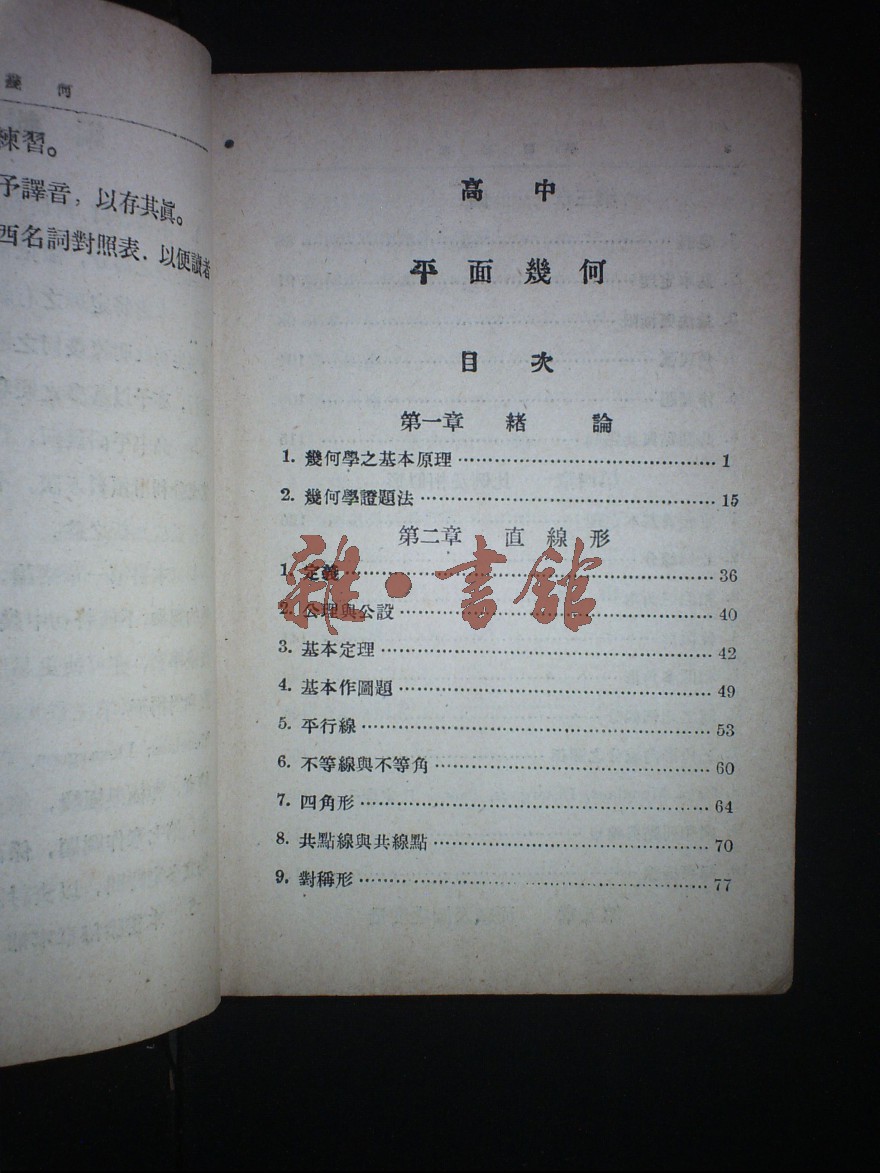 幾何
練習。
予譯音，以存其眞。
西名詞對照表．以便讀者
高中
平面幾何
目次
第一章 緒論
1. 幾何學之基本原理……1
2. 幾何學證題法……15
第二章 直線形
1. 定義……36
2. 公理與公設……40
3. 基本定理……42
4. 基本作圖題……49
5. 平行線……53
6. 不等線與不等角……60
7. 四角形……64
8. 共點線與共線點……70
9. 對稱形……77
雜·書館